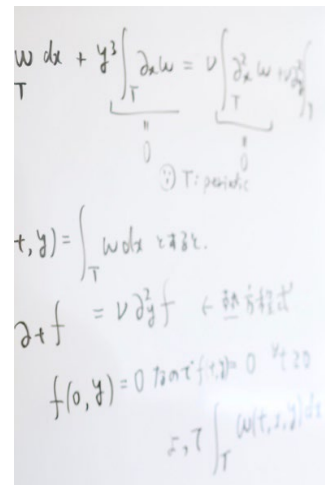 w dx + y³ ∫_T ∂ₓw = ν ∫_T ∂ₓ² w + ν ∫
T
0 0
∵ T: periodic
t, y) = ∫_T w dx とすると.
∂t f = ν ∂_y² f ← 熱方程式
f(0, y) = 0 なので f(t, y) = 0 ∀t ≥ 0
よって ∫_T w(t, x, y) dx